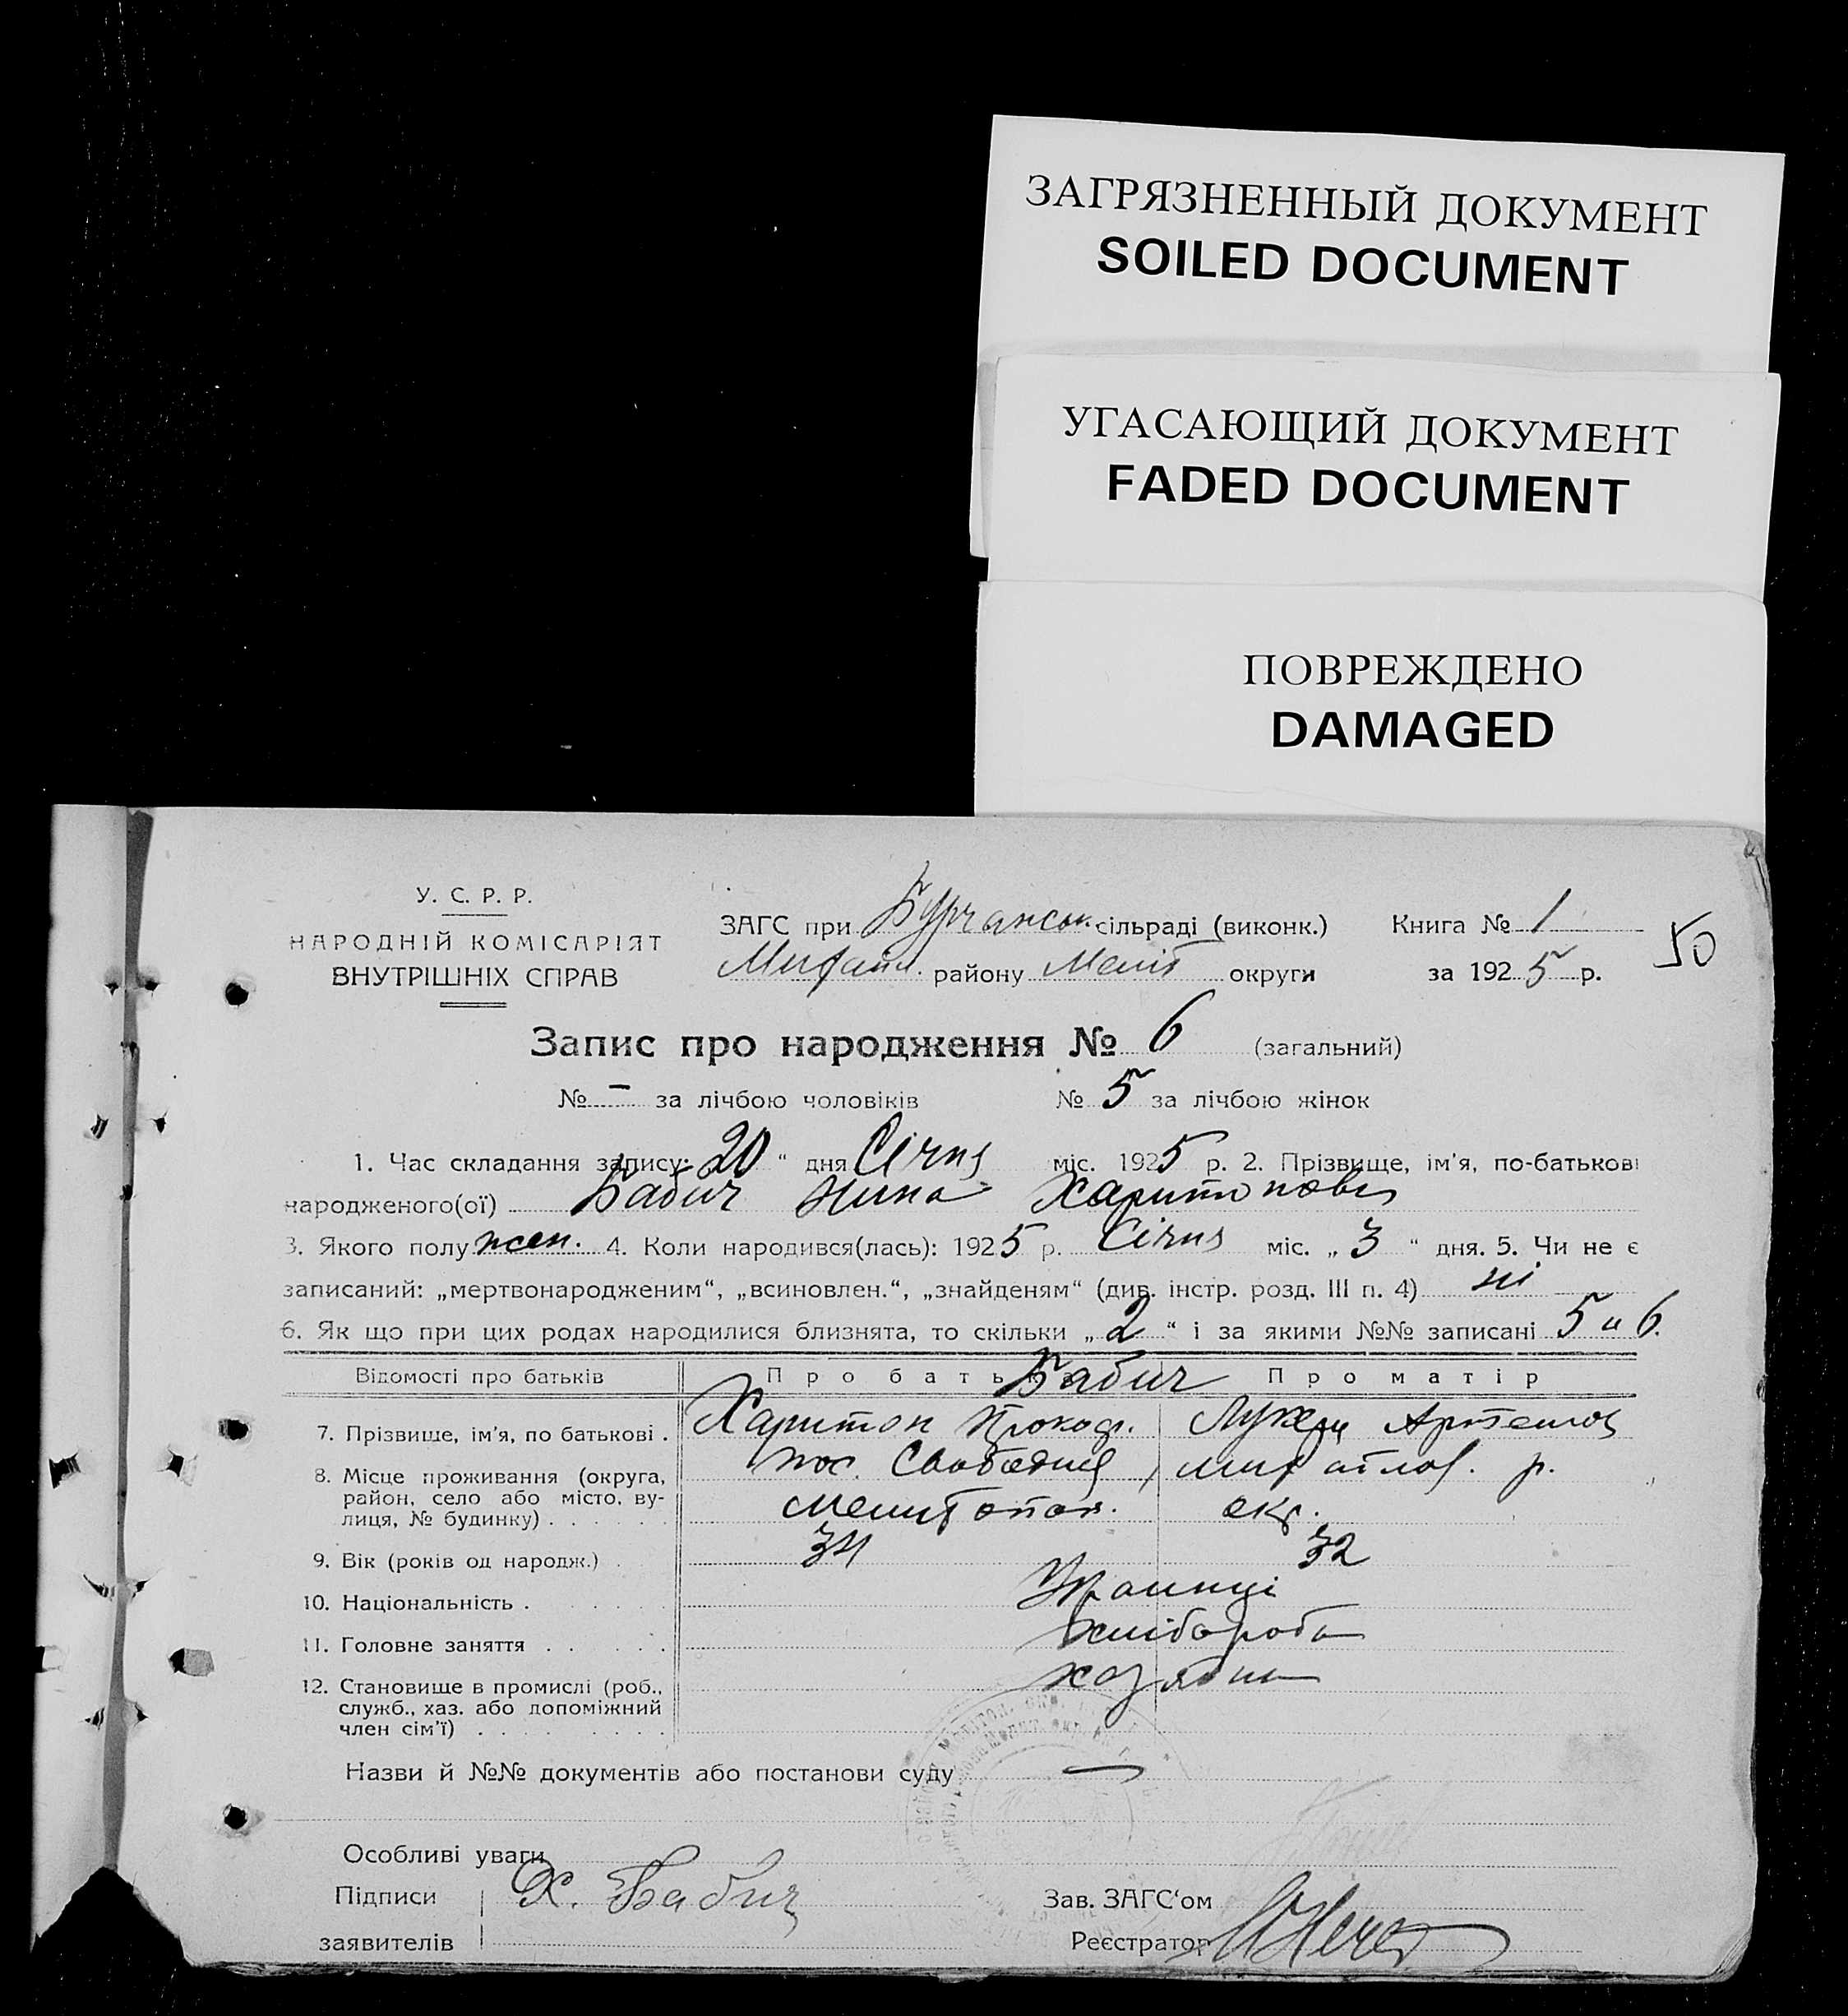 ЗАГРЯЗНЕННЫЙ ДОКУМЕНТ
SOILED DOCUMENT
УГАСАЮЩИЙ ДОКУМЕНТ
FADED DOCUMENT
ПОВРЕЖДЕНО
DAMAGED
У. С. Р. Р.
НАРОДНІЙ КОМІСАРІЯТ
ВНУТРІШНІХ СПРАВ
ЗАГС при Бурчанськ. сільраді (виконк.) Книга № 1
Михайл. району Меліт округи за 1925 р.
50
Запис про народження № 6 (загальний)
№ – за лічбою чоловіків № 5 за лічбою жінок
1. Час складання запису: 20 “ дня Січня міс. 1925 р. 2. Прізвище, ім'я, по-батькові
народженого(ої) Бабич Нина Харитонов
3. Якого полу жен. 4. Коли народився(лась): 1925 р. Січня міс. „ 3 “ дня. 5. Чи не є
записаний: „мертвонародженим“, „всиновлен.“, „знайденям“ (див. інстр. розд. III п. 4) ні
6. Як що при цих родах народилися близнята, то скільки „ 2 “ і за якими №№ записані 5 и 6.
Відомості про батьків Про батька Про матір
Бабич
7. Прізвише, ім'я, по батькові . Харитон Прокоф.
8. Місце проживання (округа, пос. Свободний, Михайлов. р.
район, село або місто, ву-
лиця, № будинку) . . . . . . Мелитопол. окр.
9. Вік (років од народж.) . 34 32
10. Національність . . . . . .
11. Головне заняття . . . . . хлібороб
12. Становище в промислі (роб.,
служб., хаз. або допоміжний
член сім'ї) . . . . . . . .
Назви й №№ документів або постанови суду —
Особливі уваги
Підписи Х. Бабич Зав. ЗАГС'ом
заявителів Реєстратор